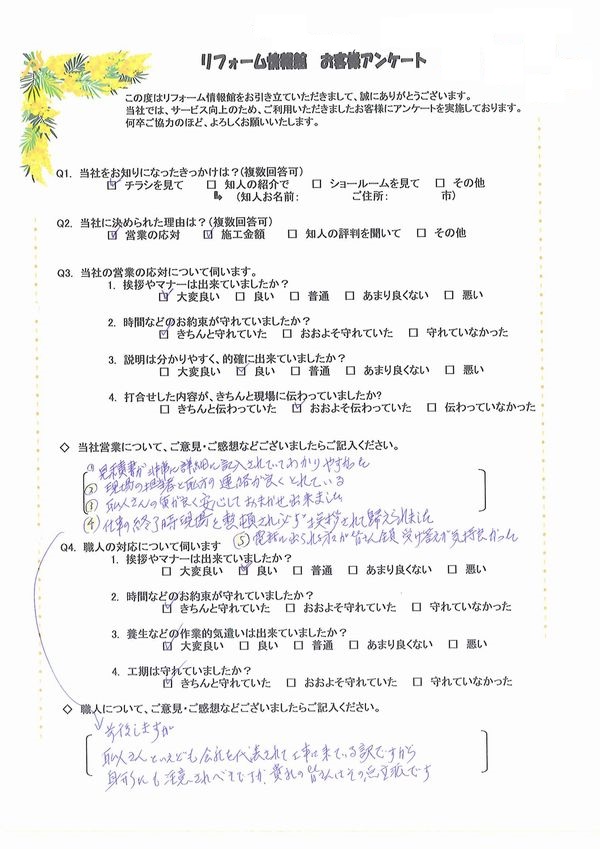 リフォーム情報館 お客様アンケート
この度はリフォーム情報館をお引き立ていただきまして、誠にありがとうございます。
当社では、サービス向上のため、ご利用いただきましたお客様にアンケートを実施しております。
何卒ご協力のほど、よろしくお願いいたします。
Q1. 当社をお知りになったきっかけは？(複数回答可)
☑ チラシを見て □ 知人の紹介で □ ショールームを見て □ その他
↳ (知人お名前: ご住所: 市)
Q2. 当社に決められた理由は？(複数回答可)
☑ 営業の応対 ☑ 施工金額 □ 知人の評判を聞いて □ その他
Q3. 当社の営業の応対について伺います。
1. 挨拶やマナーは出来ていましたか？
☑ 大変良い □ 良い □ 普通 □ あまり良くない □ 悪い
2. 時間などのお約束が守れていましたか？
☑ きちんと守れていた □ おおよそ守れていた □ 守れていなかった
3. 説明は分かりやすく、的確に出来ていましたか？
□ 大変良い ☑ 良い □ 普通 □ あまり良くない □ 悪い
4. 打合せした内容が、きちんと現場に伝わっていましたか？
□ きちんと伝わっていた ☑ おおよそ伝わっていた □ 伝わっていなかった
◇ 当社営業について、ご意見・ご感想などございましたらご記入ください。
① 見積書が非常に詳細に記入されていてわかりやすかった
② 現場の担当者と 方の連絡が良くとれている
③ 人さんの質が良く安心しておまかせ出来ました
④ 仕事の終了時現場を整頓され必ず挨拶されて帰えられました
⑤ 電話に出られる方が皆さん全員 受け答えが気持良かった
Q4. 職人の対応について伺います
1. 挨拶やマナーは出来ていましたか？
□ 大変良い ☑ 良い □ 普通 □ あまり良くない □ 悪い
2. 時間などのお約束が守れていましたか？
☑ きちんと守れていた □ おおよそ守れていた □ 守れていなかった
3. 養生などの作業的気遣いは出来ていましたか？
☑ 大変良い □ 良い □ 普通 □ あまり良くない □ 悪い
4. 工期は守れていましたか？
☑ きちんと守れていた □ おおよそ守れていた □ 守れていなかった
◇ 職人について、ご意見・ご感想などございましたらご記入ください。
前後しますが
人さんといえども会社を代表されて工事に来ている訳ですから
身形にも注意されべきですが、貴社の皆さんはその点立派です